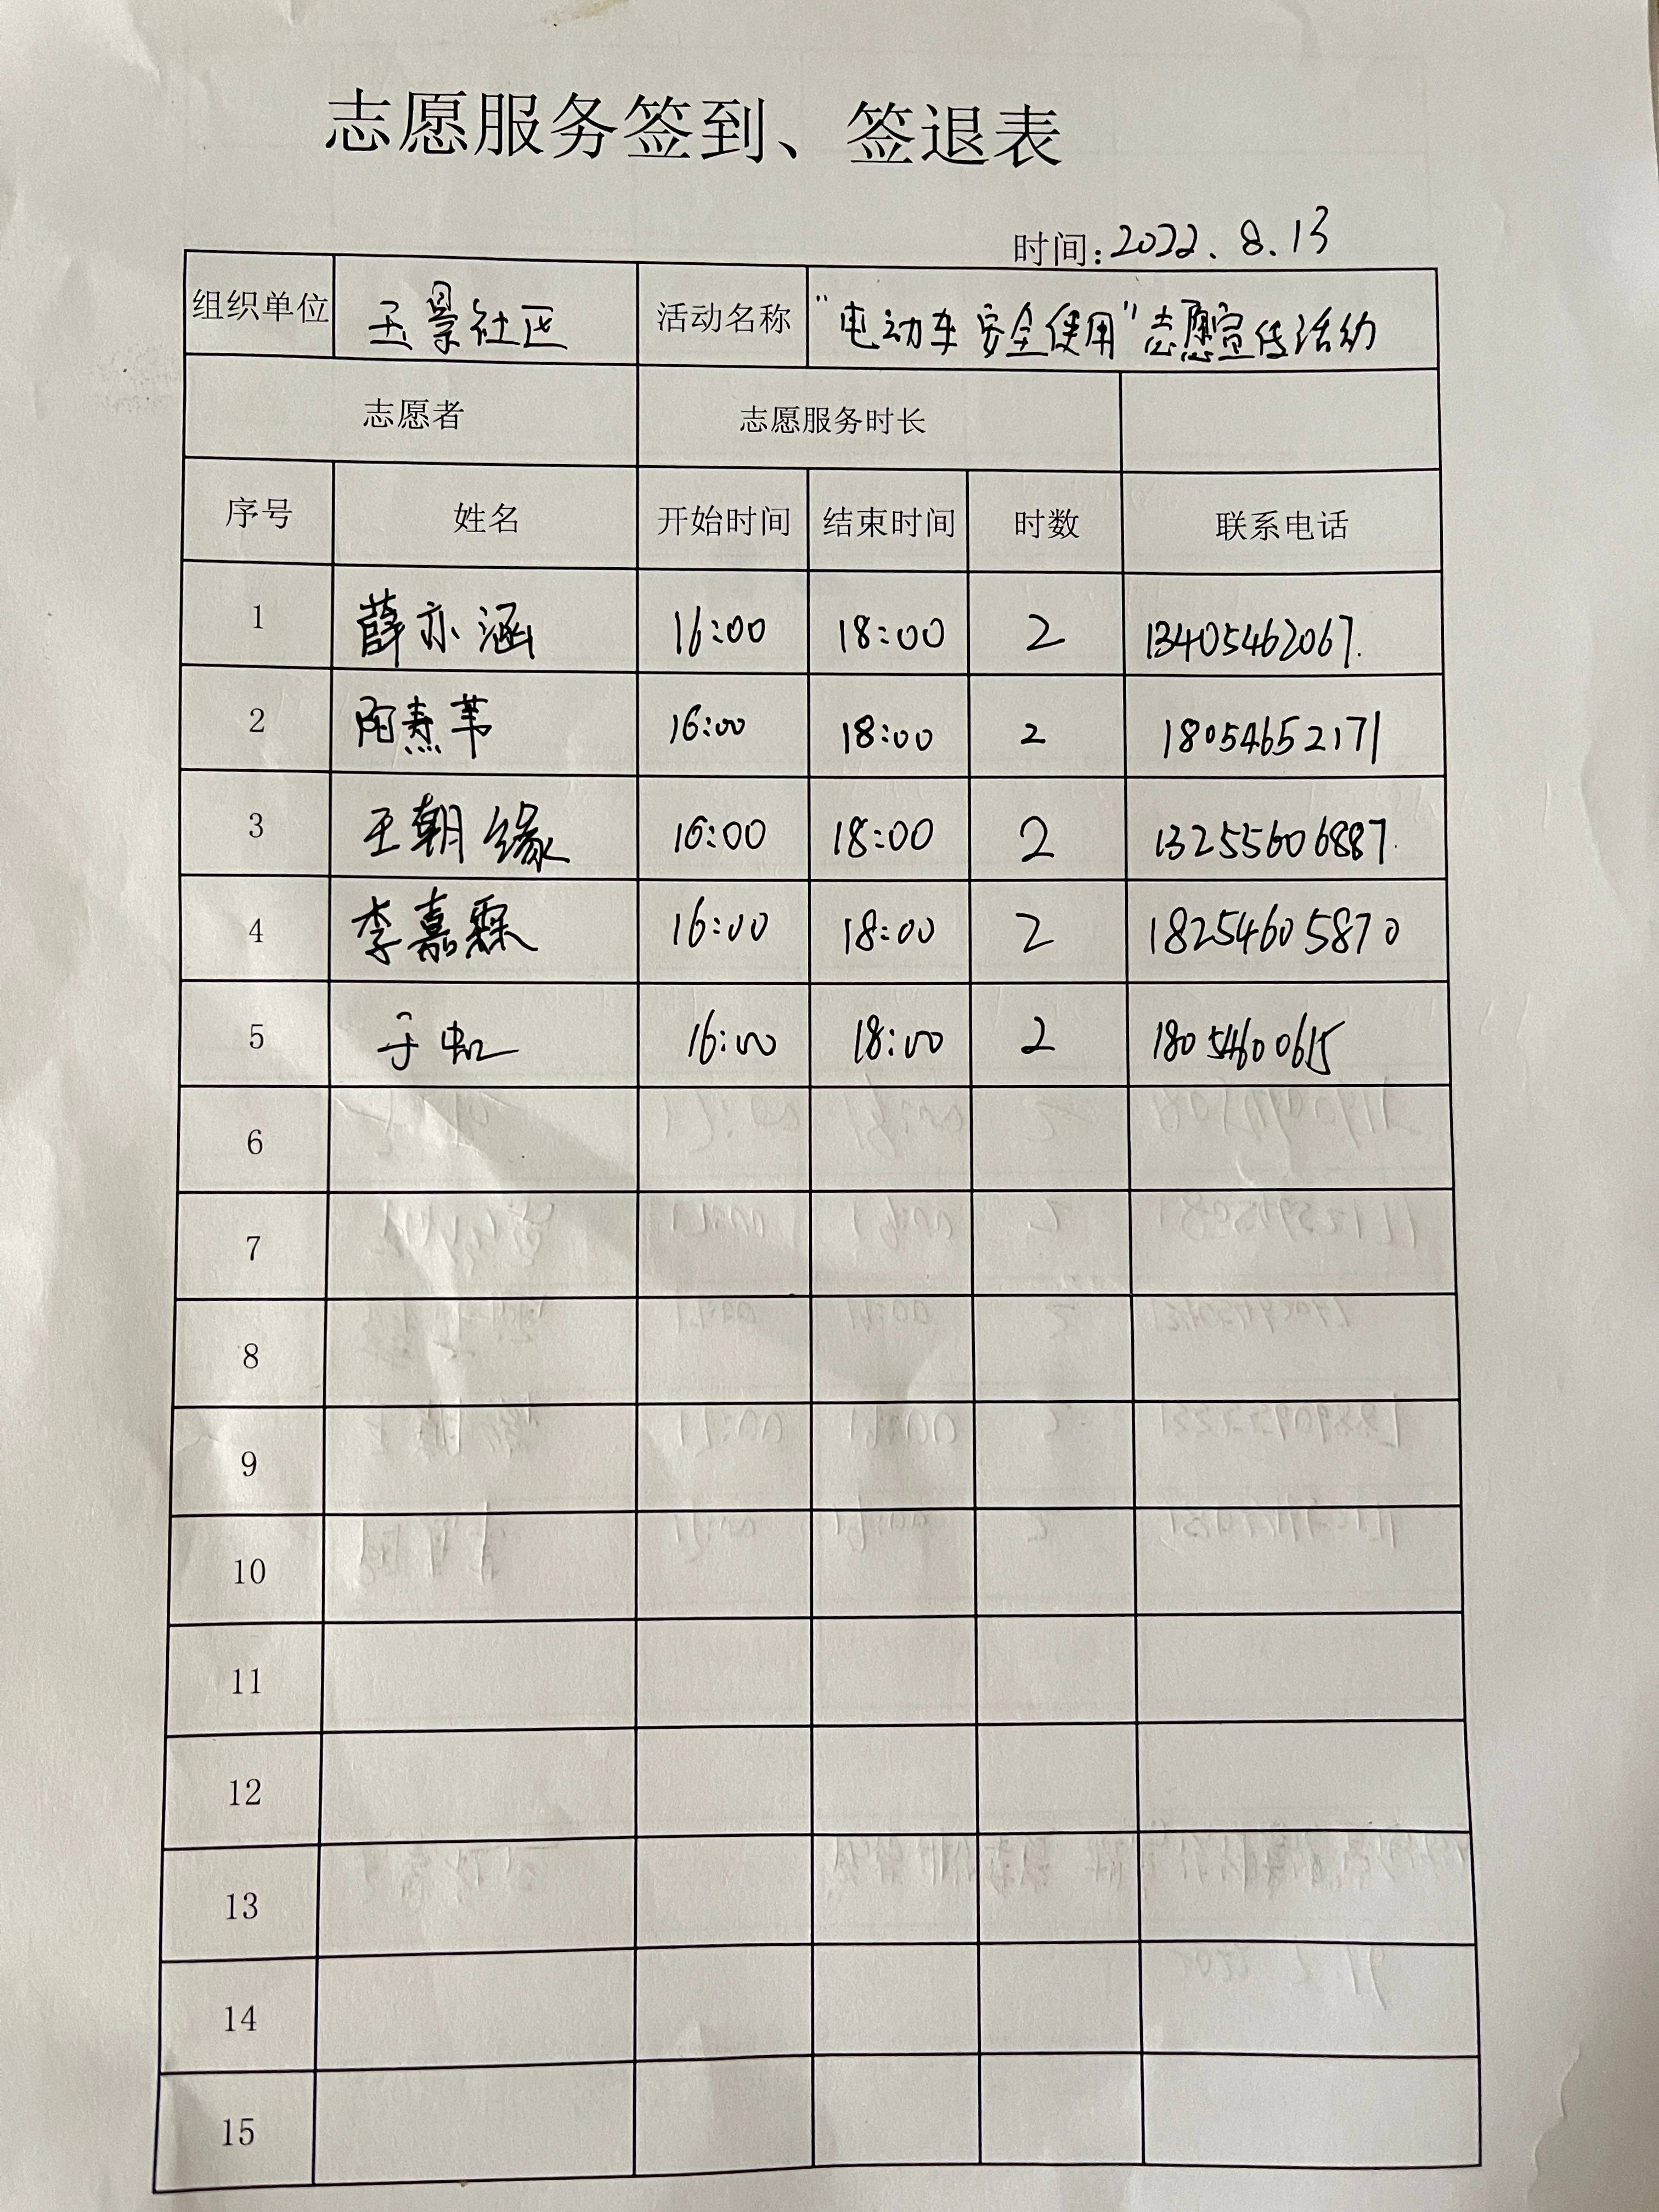 志愿服务签到、签退表
时间:2022.8.13
组织单位 玉景社区 活动名称 "电动车安全使用"志愿宣传活动
志愿者 志愿服务时长
序号 姓名 开始时间 结束时间 时数 联系电话
1 薛亦涵 16:00 18:00 2 13405462067.
2 16:00 18:00 2 18054652171
3 王朝缘 16:00 18:00 2 13255606887.
4 李嘉霖 16:00 18:00 2 18254605870
5 于虹 16:00 18:00 2 18054600615
6
7
8
9
10
11
12
13
14
15